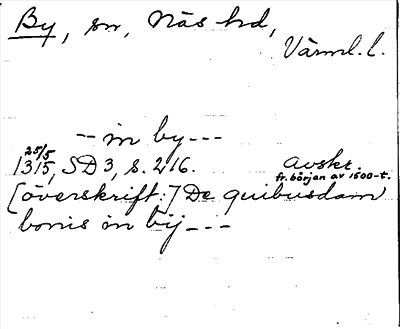 By, sn, Näs hd,
Värml. l.
-- in by ---
25/5
1315, SD 3, s. 216. avskr.
fr. början av 1500-t.
[överskrift:] De quibusdam
bonis in bij ---